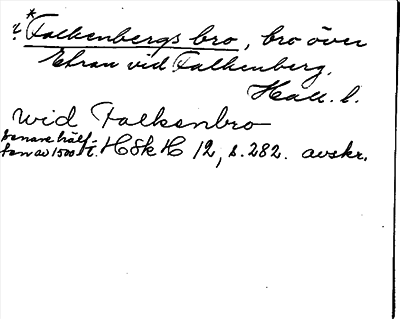 ? *Falkenbergs bro, bro över
Etran vid Falkenberg.
Hall. l.
wid Falkenbro
senare hälf-
ten av 1500 t. HSkH 12, s. 282. avskr.